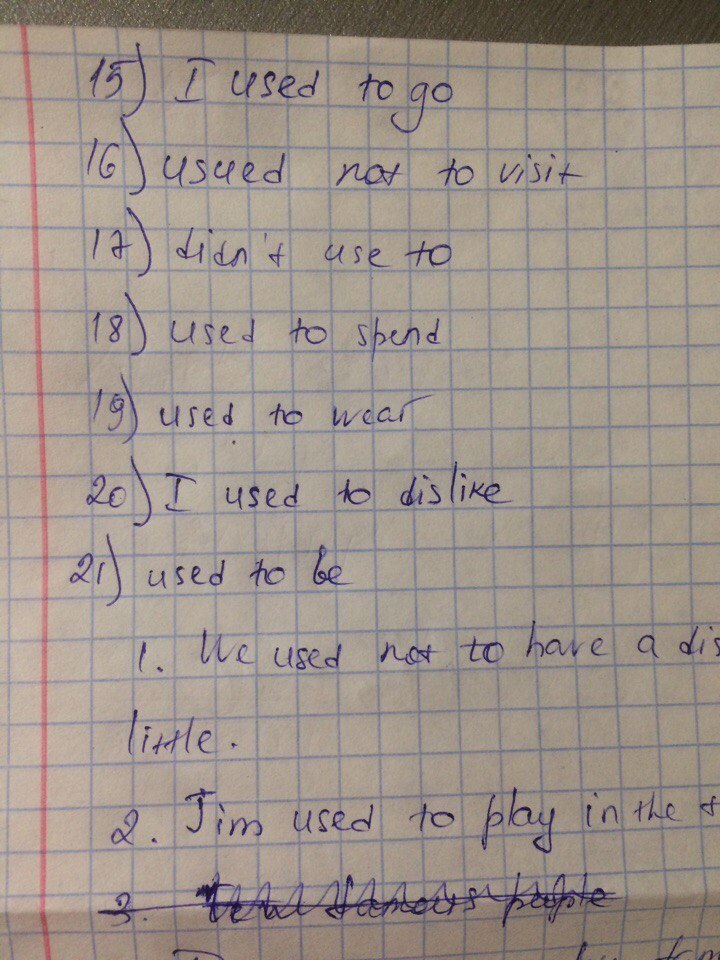 15) I used to go
16) usued not to visit
17) didn't use to
18) used to spend
19) used to wear
20) I used to dislike
21) used to be
1. We used not to have a dis
little.
2. Jim used to play in the
3. famous people